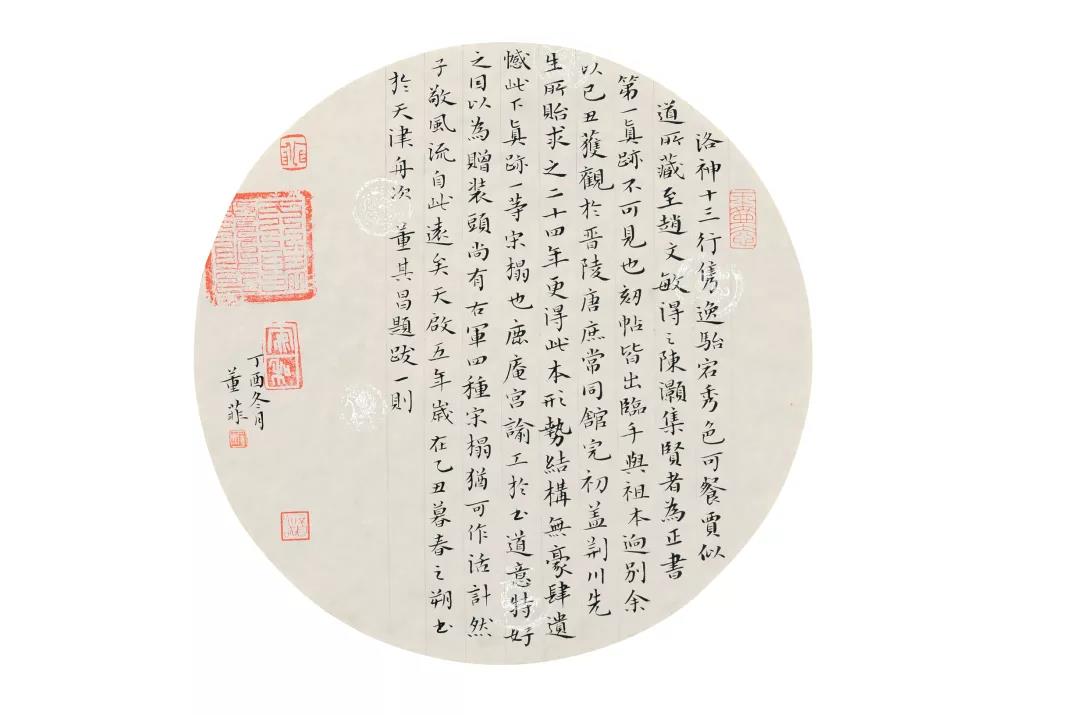 洛神十三行雋逸駘宕秀色可餐賈似
道所藏至趙文敏得之陳灝集賢者為正書
第一眞跡不可見也刻帖皆出臨手與祖本迥别余
以己丑獲觀於晋陵唐庶常同館完初盖荆川先
生所貽求之二十四年更得此本形勢結構無豪肆遺
憾此下眞跡一等宋搨也鹿庵宫諭工於書道意特好
之因以為贈装頭尚有右軍四種宋搨猶可作活計然
子敬風流自此遠矣天啟五年嵗在乙丑暮春之朔書
於天津舟次 董其昌題跋一則
丁酉冬月
董菲